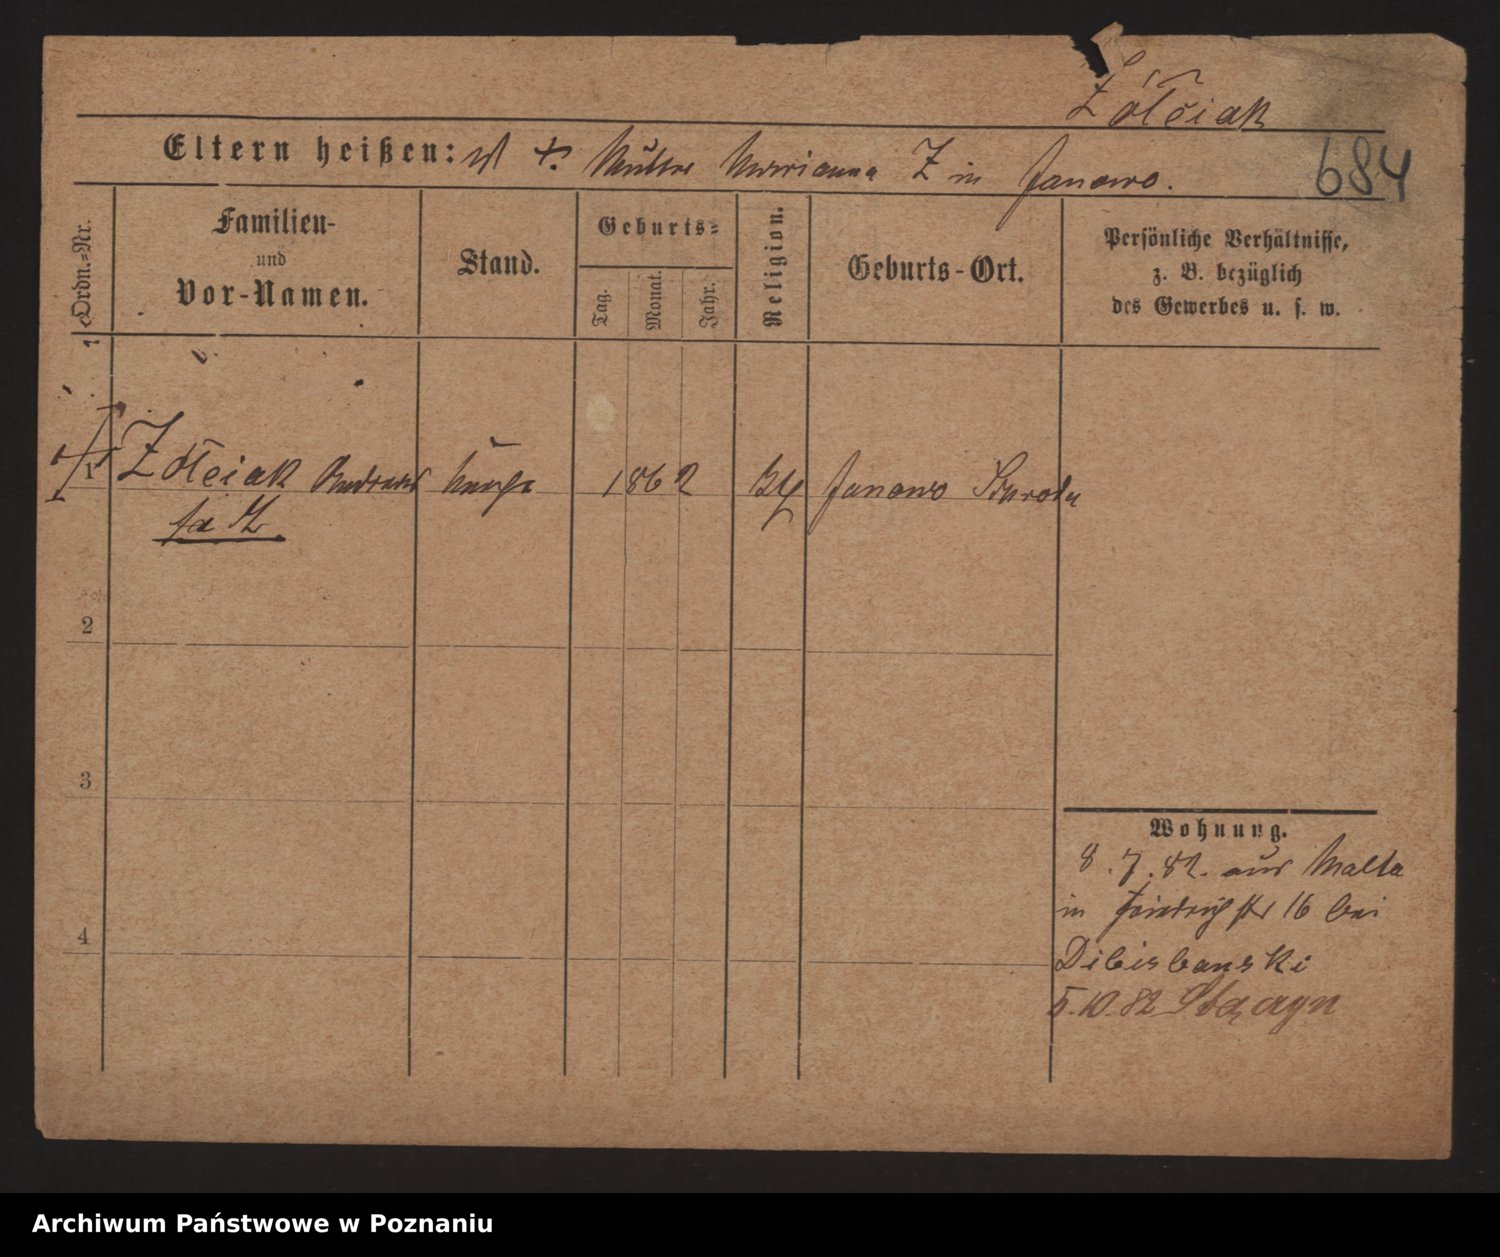 Żółciak
Eltern heißen: † Mutter Marianna Z in Janowo.
684
Ordn.=Nr.
Familien-
und
Vor-Namen.
Stand.
Geburts=
Tag.
Monat.
Jahr.
Religion.
Geburts-Ort.
Persönliche Verhältnisse,
z. B. bezüglich
des Gewerbes u. s. w.
1 Żółciak Andreas 1862 Janowo Schroda
2
3
4
Wohnung.
8.7.82. aus Malta
in Friedrichstr 16 bei
Dibisbanski
5.10.82
Archiwum Państwowe w Poznaniu